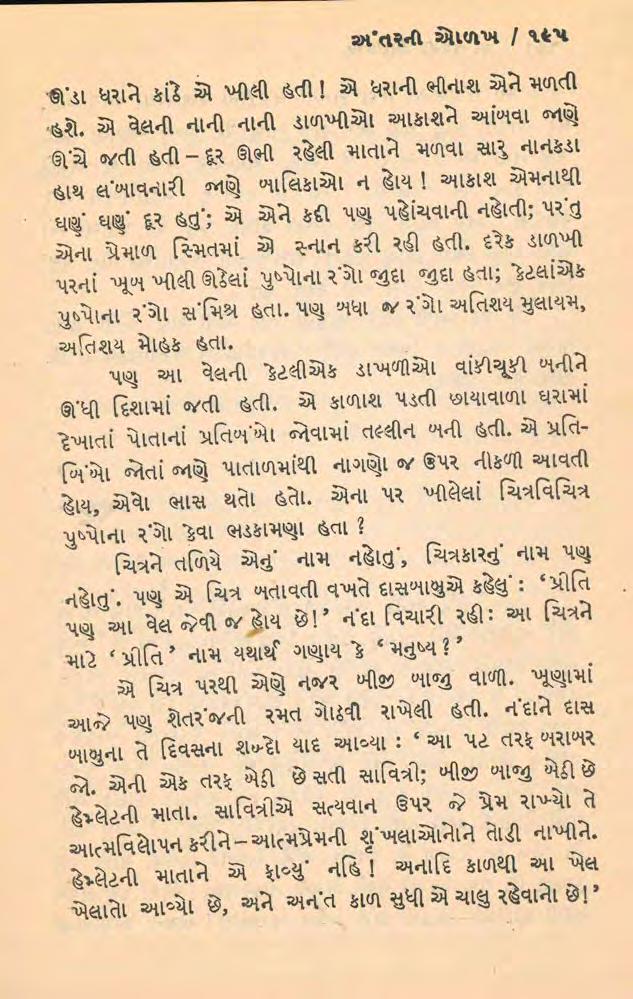 અંતરની ઓળખ / ૧૯૫
ઊંડા ધરાને કાંઠે એ ખીલી હતી! એ ધરાની ભીનાશ એને મળતી
હશે. એ વેલની નાની નાની ડાળખીઓ આકાશને આંબવા જાણે
ઊંચે જતી હતી – દૂર ઊભી રહેલી માતાને મળવા સારુ નાનકડા
હાથ લંબાવનારી જાણે બાલિકાઓ ન હોય! આકાશ એમનાથી
ઘણું ઘણું દૂર હતું; એ એને કદી પણ પહોંચવાની નહોતી; પરંતુ
એના પ્રેમાળ સ્મિતમાં એ સ્નાન કરી રહી હતી. દરેક ડાળખી
પરનાં ખૂબ ખીલી ઊઠેલાં પુષ્પોના રંગો જુદા જુદા હતા; કેટલાંએક
પુષ્પોના રંગો સંમિશ્ર હતા. પણ બધા જ રંગો અતિશય મુલાયમ,
અતિશય મોહક હતા.
પણ આ વેલની કેટલીએક ડાખળીઓ વાંકીચૂકી બનીને
ઊંધી દિશામાં જતી હતી. એ કાળાશ પડતી છાયાવાળા ધરામાં
દેખાતાં પોતાનાં પ્રતિબિંબો જોવામાં તલ્લીન બની હતી. એ પ્રતિ-
બિંબો જોતાં જાણે પાતાળમાંથી નાગણો જ ઉપર નીકળી આવતી
હોય, એવો ભાસ થતો હતો. એના પર ખીલેલાં ચિત્રવિચિત્ર
પુષ્પોના રંગો કેવા ભડકામણા હતા?
ચિત્રને તળિયે એનું નામ નહોતું, ચિત્રકારનું નામ પણ
નહોતું. પણ એ ચિત્ર બતાવતી વખતે દાસબાબુએ કહેલું : ‘પ્રીતિ
પણ આ વેલ જેવી જ હોય છે!’ નંદા વિચારી રહીઃ આ ચિત્રને
માટે ‘પ્રીતિ’ નામ યથાર્થ ગણાય કે ‘મનુષ્ય?’
એ ચિત્ર પરથી એણે નજર બીજી બાજુ વાળી. ખૂણામાં
આજે પણ શેતરંજની રમત ગોઠવી રાખેલી હતી. નંદાને દાસ
બાબુના તે દિવસના શબ્દો યાદ આવ્યા : ‘આ પટ તરફ બરાબર
જો. એની એક તરફ બેઠી છે સતી સાવિત્રી; બીજી બાજુ બેઠી છે
હેમ્લેટની માતા. સાવિત્રીએ સત્યવાન ઉપર જે પ્રેમ રાખ્યો તે
આત્મવિલોપન કરીને–આત્મપ્રેમની શૃંખલાઓનોને તોડી નાખીને.
હેમ્લેટની માતાને એ ફાવ્યું નહિ! અનાદિ કાળથી આ ખેલ
ખેલાતો આવ્યો છે, અને અનંત કાળ સુધી એ ચાલુ રહેવાનો છે!’